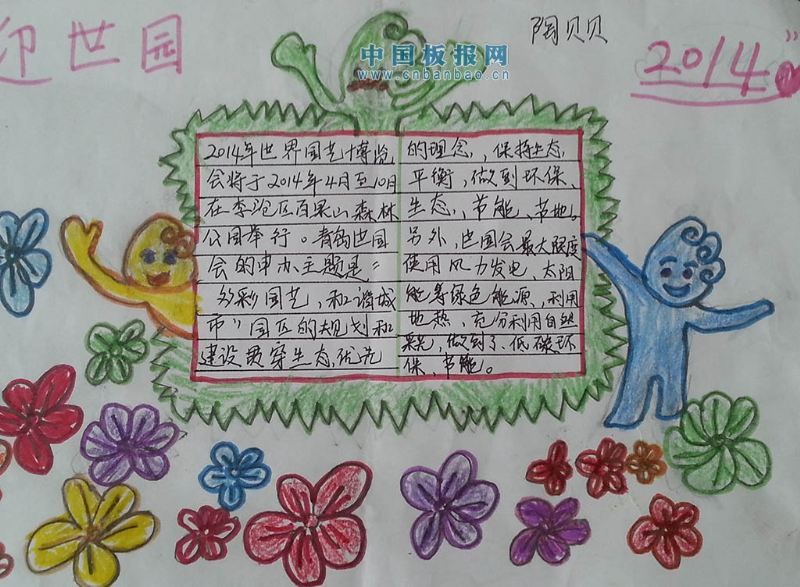 迎世园
中国板报网
www.cnbanbao.cn
陶贝贝
2014
2014年世界园艺博览
会将于2014年4月至10月
在李沧区百果山森林
公园举行。青岛世园
会的申办主题是“
多彩园艺，和谐城
市”园区的规划和
建设贯穿生态优先
的理念，保持生态
平衡，做到环保、
生态、节能、节地。
另外，世园会最大限度
使用风力发电、太阳
能等绿色能源、利用
地热，充分利用自然
采光，做到了低碳环
保、节能。